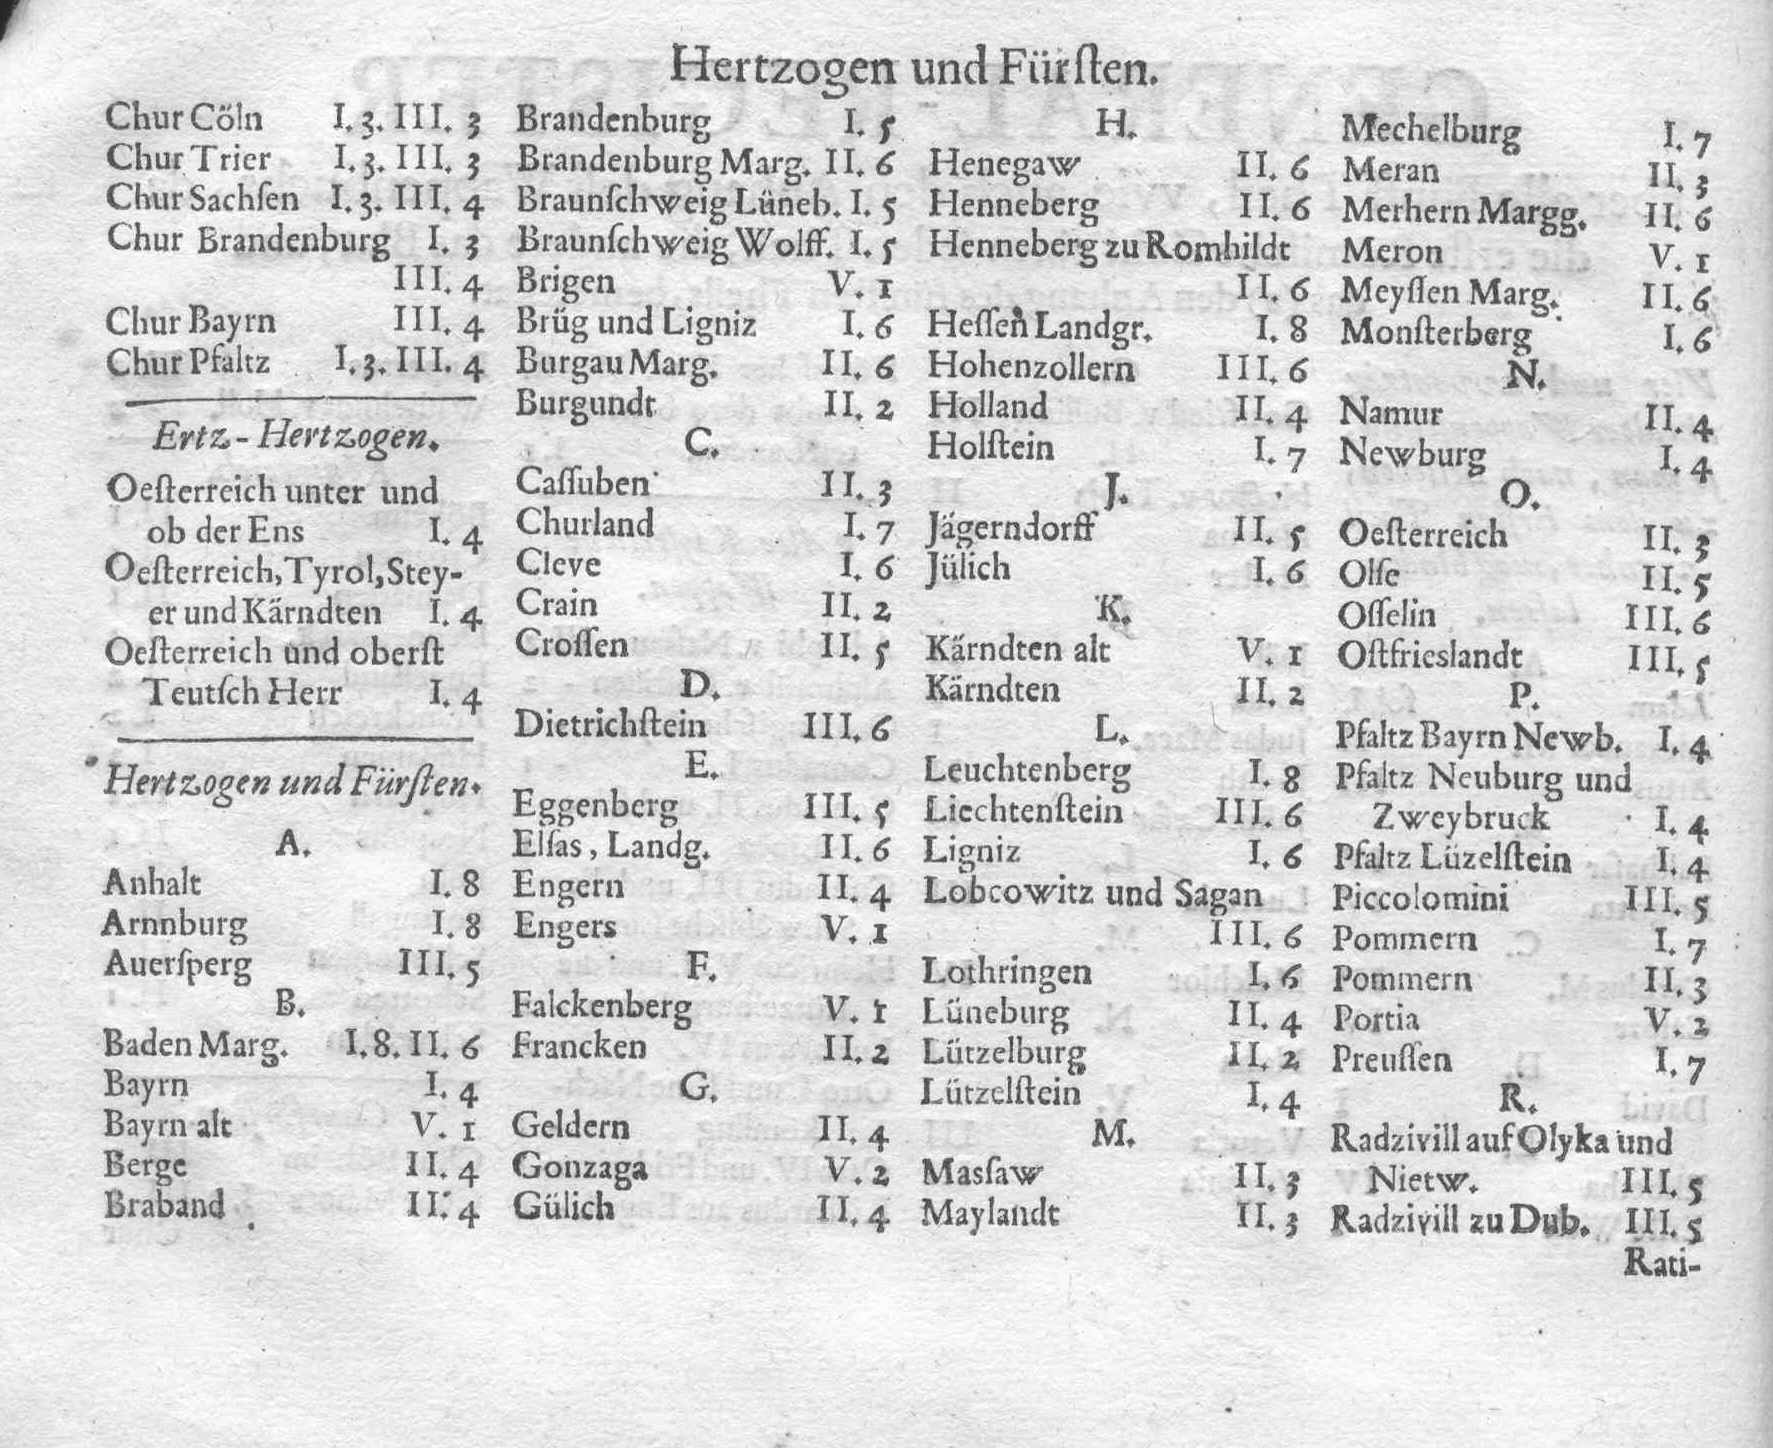 Hertzogen und Fürſten.
Chur Cöln I. 3. III. 3
Chur Trier I. 3. III. 3
Chur Sachſen I. 3. III. 4
Chur Brandenburg I. 3
III. 4
Chur Bayrn III. 4
Chur Pfaltz I. 3. III. 4
Ertz-Hertzogen.
Oeſterreich unter und
ob der Ens I. 4
Oeſterreich, Tyrol, Stey-
er und Kärndten I. 4
Oeſterreich und oberſt
Teutſch Herr I. 4
Hertzogen und Fürſten.
A.
Anhalt I. 8
Arnnburg I. 8
Auerſperg III. 5
B.
Baden Marg. I. 8. II. 6
Bayrn I. 4
Bayrn alt V. 1
Berge II. 4
Braband II. 4
Brandenburg I. 5
Brandenburg Marg. II. 6
Braunſchweig Lüneb. I. 5
Braunſchweig Wolff. I. 5
Brigen V. 1
Brüg und Ligniz I. 6
Burgau Marg. II. 6
Burgundt II. 2
C.
Caſſuben II. 3
Churland I. 7
Cleve I. 6
Crain II. 2
Croſſen II. 5
D.
Dietrichſtein III. 6
E.
Eggenberg III. 5
Elſas, Landg. II. 6
Engern II. 4
Engers V. 1
F.
Falckenberg V. 1
Francken II. 2
G.
Geldern II. 4
Gonzaga V. 2
Gülich II. 4
H.
Henegaw II. 6
Henneberg II. 6
Henneberg zu Romhildt
II. 6
Heſſen Landgr. I. 8
Hohenzollern III. 6
Holland II. 4
Holſtein I. 7
J.
Jägerndorff II. 5
Jülich I. 6
K.
Kärndten alt V. 1
Kärndten II. 2
L.
Leuchtenberg I. 8
Liechtenſtein III. 6
Ligniz I. 6
Lobcowitz und Sagan
III. 6
Lothringen I. 6
Lüneburg II. 4
Lützelburg II. 2
Lützelſtein I. 4
M.
Maſſaw II. 3
Maylandt II. 3
Mechelburg I. 7
Meran II. 3
Merhern Margg. II. 6
Meron V. 1
Meyſſen Marg. II. 6
Monſterberg I. 6
N.
Namur II. 4
Newburg I. 4
O.
Oeſterreich II. 3
Olſe II. 5
Oſſelin III. 6
Oſtfrieslandt III. 5
P.
Pfaltz Bayrn Newb. I. 4
Pfaltz Neuburg und
Zweybruck I. 4
Pfaltz Lüzelſtein I. 4
Piccolomini III. 5
Pommern I. 7
Pommern II. 3
Portia V. 2
Preuſſen I. 7
R.
Radzivill auf Olyka und
Nietw. III. 5
Radzivill zu Dub. III. 5
Rati-